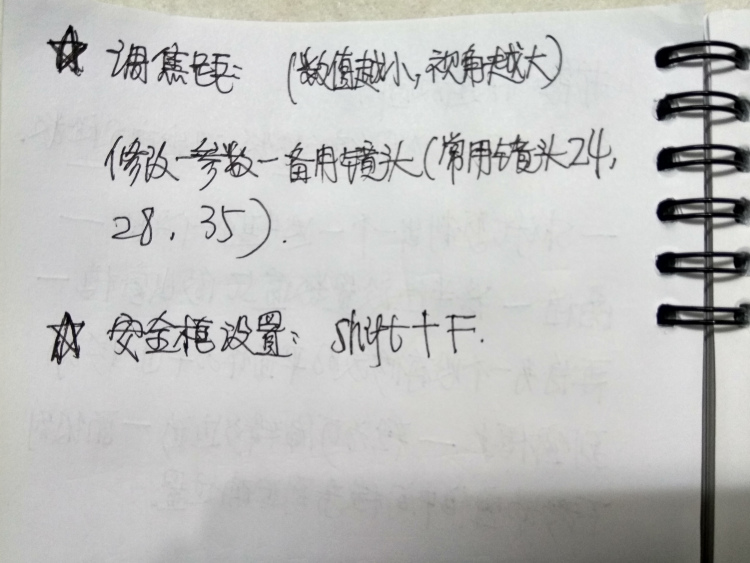 ☆ 调焦距: (数值越小,视角越大)
修改-参数-备用镜头(常用镜头24,
28、35).
☆ 安全框设置: shift+F.